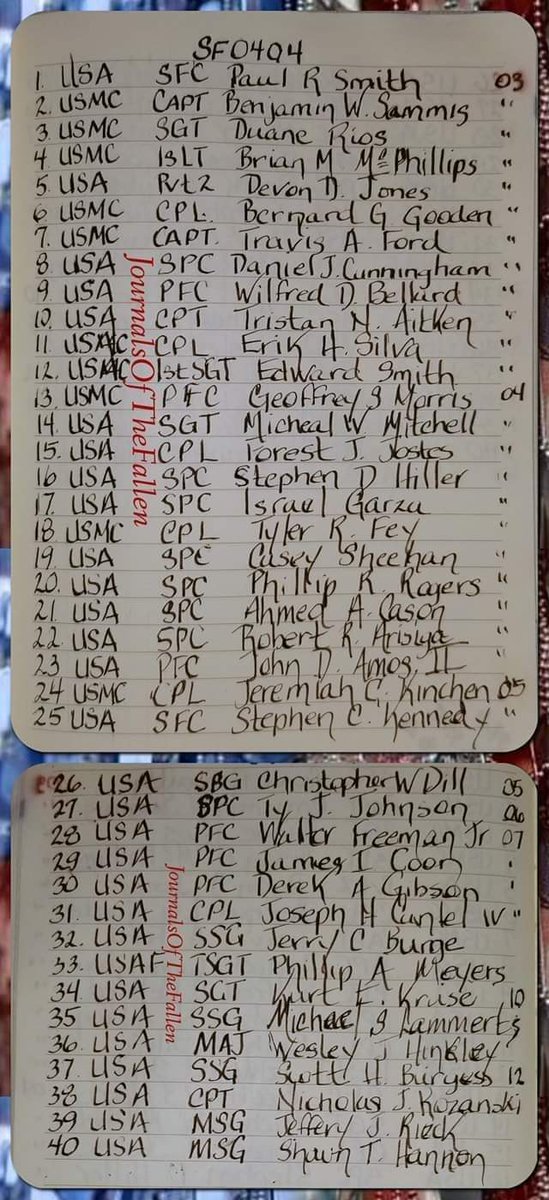 SF0404
1. USA SFC Paul R Smith 03
2. USMC CAPT Benjamin W. Sammis "
3 USMC SGT Duane Rios "
4 USMC 1stLT Brian M McPhillips "
5. USA Pvt2 Devon D. Jones "
6 USMC CPL. Bernard G Gooden "
7. USMC CAPT. Travis A. Ford "
8 USA SPC Daniel J. Cunningham "
9 USA PFC Wilfred D. Bellard "
10. USA CPT Tristan N. Aitken "
11 USMC CPL Erik H. Silva "
12. USMC 1stSGT Edward Smith "
13. USMC PFC Geoffrey S Morris 04
14. USA SGT Micheal W Mitchell "
15. USA CPL Forest J. Jostes "
16 USA SPC Stephen D Hiller "
17. USA SPC Israel Garza "
18 USMC CPL Tyler R. Fey "
19. USA SPC Casey Sheehan "
20. USA SPC Phillip R. Rogers "
21. USA SPC Ahmed A. Cason "
22 USA SPC Robert R. Arsiga "
23 USA PFC John D. Amos II "
24 USMC CPL Jeremiah C. Kinchen 05
25 USA SFC Stephen C. Kennedy "
JournalsOfTheFallen
26. USA SSG Christopher W Dill 05
27. USA SPC Ty J. Johnson 06
28 USA PFC Walter Freeman Jr 07
29 USA PFC James I Coon "
30 USA PFC Derek A Gibson "
31. USA CPL Joseph H Cantel IV "
32. USA SSG Jerry C Burge
33. USAF TSGT Phillip A Meyers
34 USA SGT Kurt E. Kruse 10
35 USA SSG Michael S Lammerts
36. USA MAJ Wesley J Hinkley
37. USA SSG Scott H. Burgess 12
38 USA CPT Nicholas J. Rozanski
39 USA MSG Jeffery J. Rieck
40 USA MSG Shawn T. Hannon
JournalsOfTheFallen